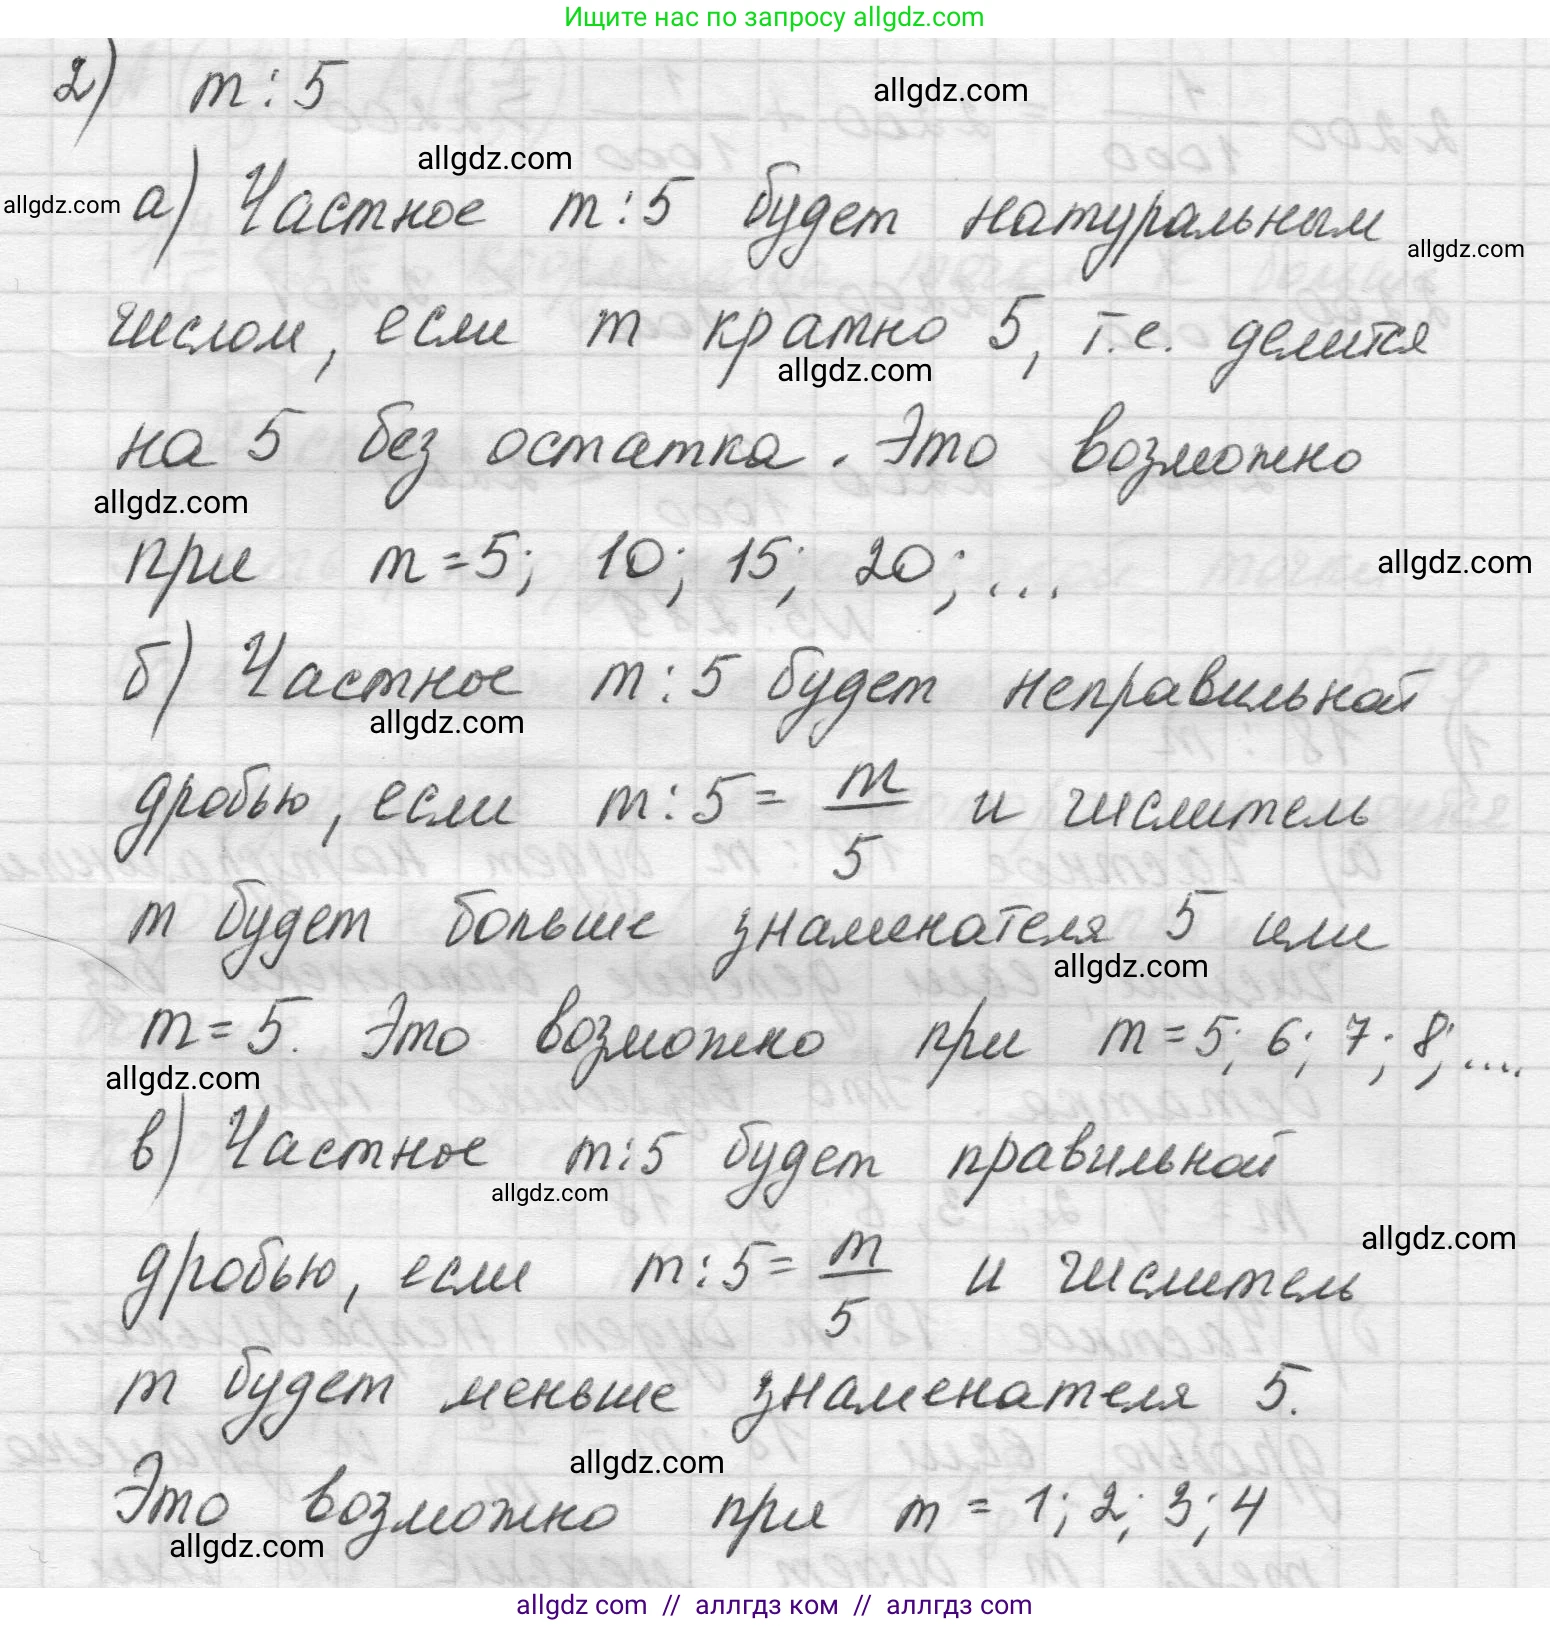 Ищите нас по запросу allgdz.com
2) m : 5
allgdz.com
allgdz.com
allgdz.com
а) Частное m : 5 будет натуральным
allgdz.com
числом, если m кратно 5, т.е. делится
allgdz.com
на 5 без остатка. Это возможно
allgdz.com
при m = 5; 10; 15; 20; ...
allgdz.com
б) Частное m : 5 будет неправильной
allgdz.com
дробью, если m : 5 = m/5 и числитель
m будет больше знаменателя 5 или
allgdz.com
m = 5. Это возможно при m = 5; 6; 7; 8; ....
allgdz.com
в) Частное m : 5 будет правильной
allgdz.com
allgdz.com
дробью, если m : 5 = m/5 и числитель
m будет меньше знаменателя 5.
allgdz.com
Это возможно при m = 1; 2; 3; 4
allgdz.com
allgdz com // аллгдз ком // аллгдз com